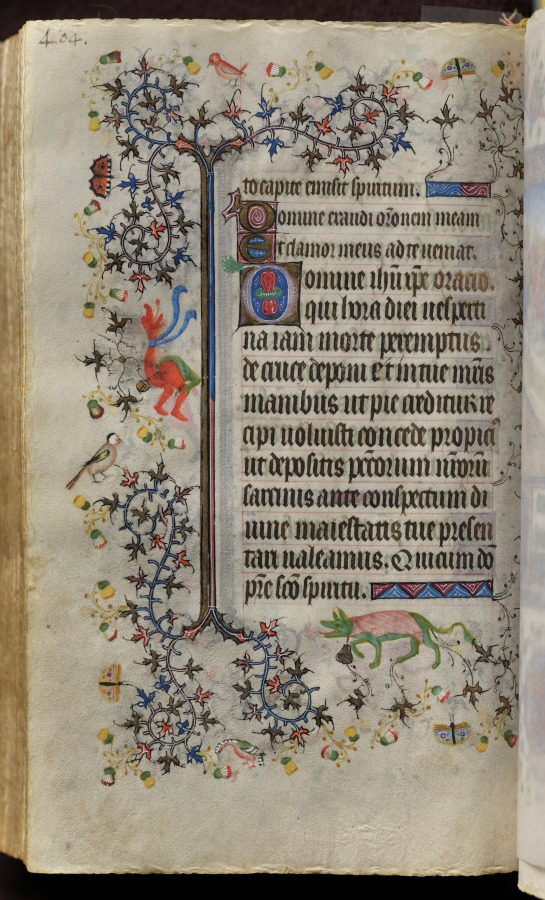 404.
to capite emisit spiritum.
Domine exaudi orōnem meam
Et clamor meus ad te veniat.
Domine ihū xpē oracio.
qui hora diei uesperti
na iam morte peremptus
de cruce deponi et in tue mr̄is
manibus ut pie creditur re
cipi uoluisti concede propici9
ut depositis pccōrum nrōrū
sarcinis ante conspectum di
uine maiestatis tue presen
tari ualeamus. Qui cum dō
prē scō spiritu.